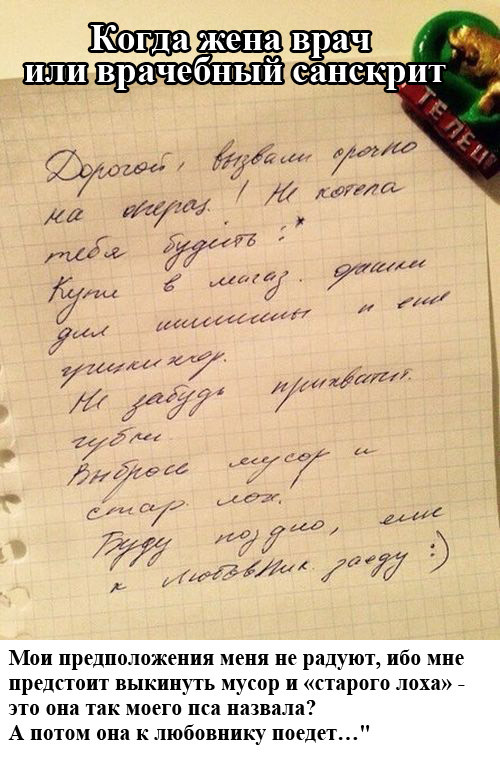 Когда жена врач
или врачебный санскрит
ТЕЛЕЦ
Дорогой, вызвали срочно
на операц. ! Не хотела
тебя будить :*
Купи в магаз.
для и еще
Не забудь прихватит.
губки.
Выброси мусор и
стар. лох!
Буду поздно, еще
к любовник. заеду :)
Мои предположения меня не радуют, ибо мне
предстоит выкинуть мусор и «старого лоха» -
это она так моего пса назвала?
А потом она к любовнику поедет…"